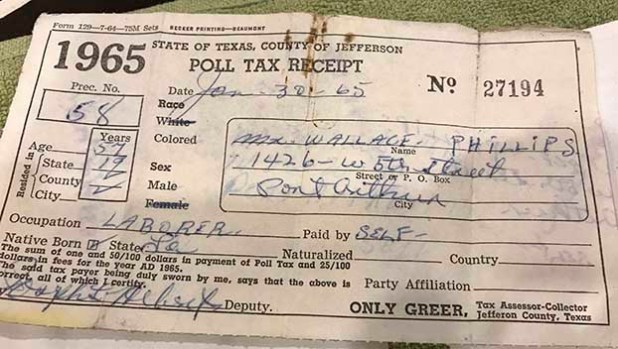 Form 129—7-64—75M Sets BECKER PRINTING—BEAUMONT
1965 STATE OF TEXAS, COUNTY OF JEFFERSON
POLL TAX RECEIPT
Nº 27194
Prec. No. 58
Date Jan 30-65
Race
White
Colored
Mr. WALLACE PHILLIPS
Name
1426-W 5th Street
Street or P. O. Box
Port Arthur
City
Years
Age 57
Resided in
State 19
County
City
Sex
Male
Female
Occupation LABORER Paid by SELF-
Native Born State La Naturalized Country
The sum of one and 50/100 dollars in payment of Poll Tax and 25/100
dollars in fees for the year AD 1965.
The said tax payer being duly sworn by me, says that the above is
correct, all of which I certify.
Party Affiliation
Deputy.
ONLY GREER, Tax Assessor-Collector
Jefferson County, Texas